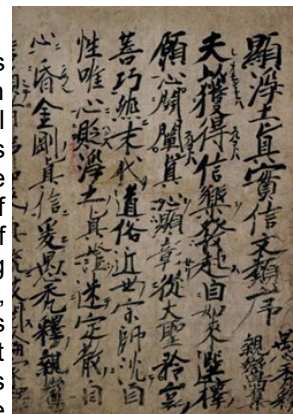 顯淨土眞實信文類序
愚禿釋
親鸞集
夫以獲得信樂發起自如來選擇
願心開闡眞心顯彰從大聖矜哀
善巧然末代道俗近世宗師沈自
性唯心貶淨土眞證迷定散自
心昏金剛眞信爰愚禿釋親鸞